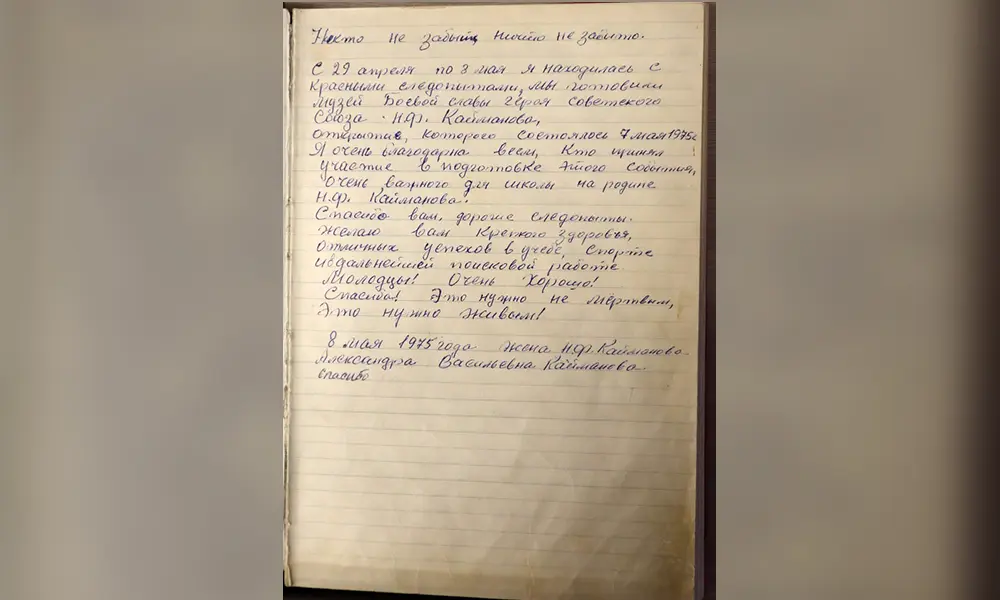 Никто не забыт, ничто не забыто.
С 29 апреля по 8 мая я находилась с
красными следопытами, мы готовили
музей Боевой славы героя Советского
Союза Н.Ф. Кайманова,
открытие, которого состоялось 7 мая 1975г
Я очень благодарна всем, кто принял
участие в подготовке этого события,
Очень важного для школы на родине
Н.Ф. Кайманова.
Спасибо вам, дорогие следопыты.
Желаю вам крепкого здоровья,
отличных успехов в учебе, спорте
и в дальнейшей поисковой работе.
Молодцы! Очень хорошо!
Спасибо! Это нужно не мёртвым,
Это нужно живым!
8 мая 1975 года жена Н.Ф. Кайманова
Александра Васильевна Кайманова.
спасибо